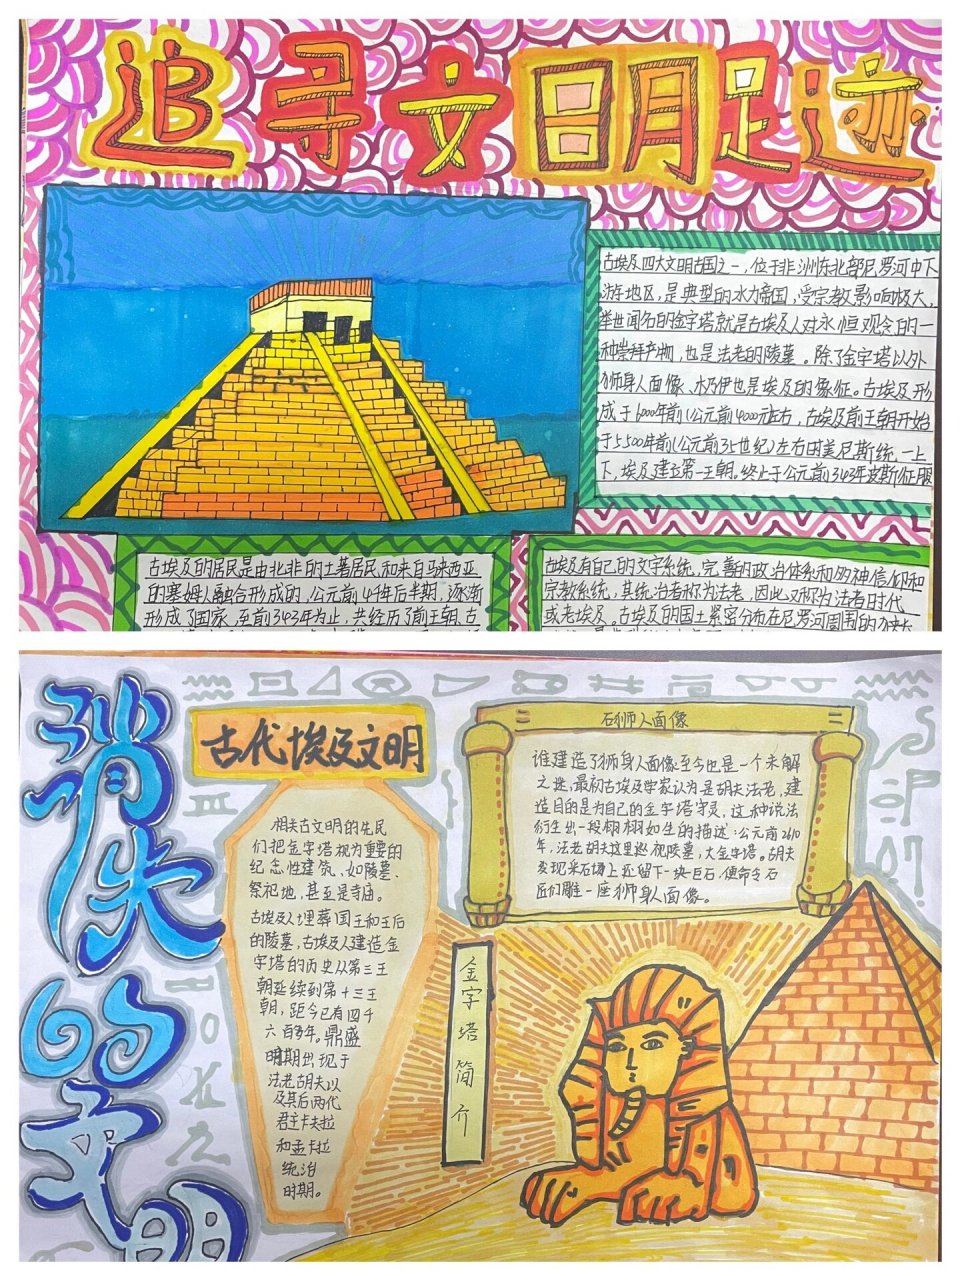 追寻文明足迹
古埃及四大文明古国之一，位于非洲东北部尼罗河中下
游地区，是典型的水力帝国，受宗教影响极大，
举世闻名的金字塔就是古埃及人对永恒观念的一
种崇拜产物，也是法老的陵墓。除了金字塔以外
狮身人面像、木乃伊也是埃及的象征。古埃及形
成于6000年前(公元前4000元左右，古埃及前王朝开始
于5500年前(公元前35世纪)左右的美尼斯统一上
下，埃及建立第一王朝。终止于公元前343年波斯征服
古埃及的居民是由北非的土著居民和来自马来西亚
的塞姆人融合形成的，公元前49年后半期，逐渐
形成了国家，至前343年为止，共经历了前王朝、古
古埃及有自己的文字系统，完善的政治体系和多神信仰和
宗教系统，其统治者称为法老，因此又称为法老时代
或老埃及。古埃及的国土紧密分布在尼罗河周围的狭长
消失的文明
古代埃及文明
相关古文明的先民
们把金字塔视为重要的
纪念性建筑，如陵墓、
祭祀地，甚至是寺庙。
古埃及人埋葬国王和王后
的陵墓，古埃及人建造金
字塔的历史从第三王
朝延续到第十三王
朝，距今已有四千
六百多年。鼎盛
时期出现于
法老胡夫以
及其后两代
君主卡夫拉
和孟卡拉
统治
时期。
石狮人面像
谁建造了狮身人面像至今也是一个未解
之迷，最初古埃及学家认为是胡夫法老，建
造目的是为自己的金字塔守灵，这种说法
衍生出一段栩栩如生的描述：公元前2610
年，法老胡夫这里巡视陵墓，大金字塔。胡夫
发现采石场上还留下一块巨石，便命令石
匠们雕一座狮身人面像。
金字塔简介